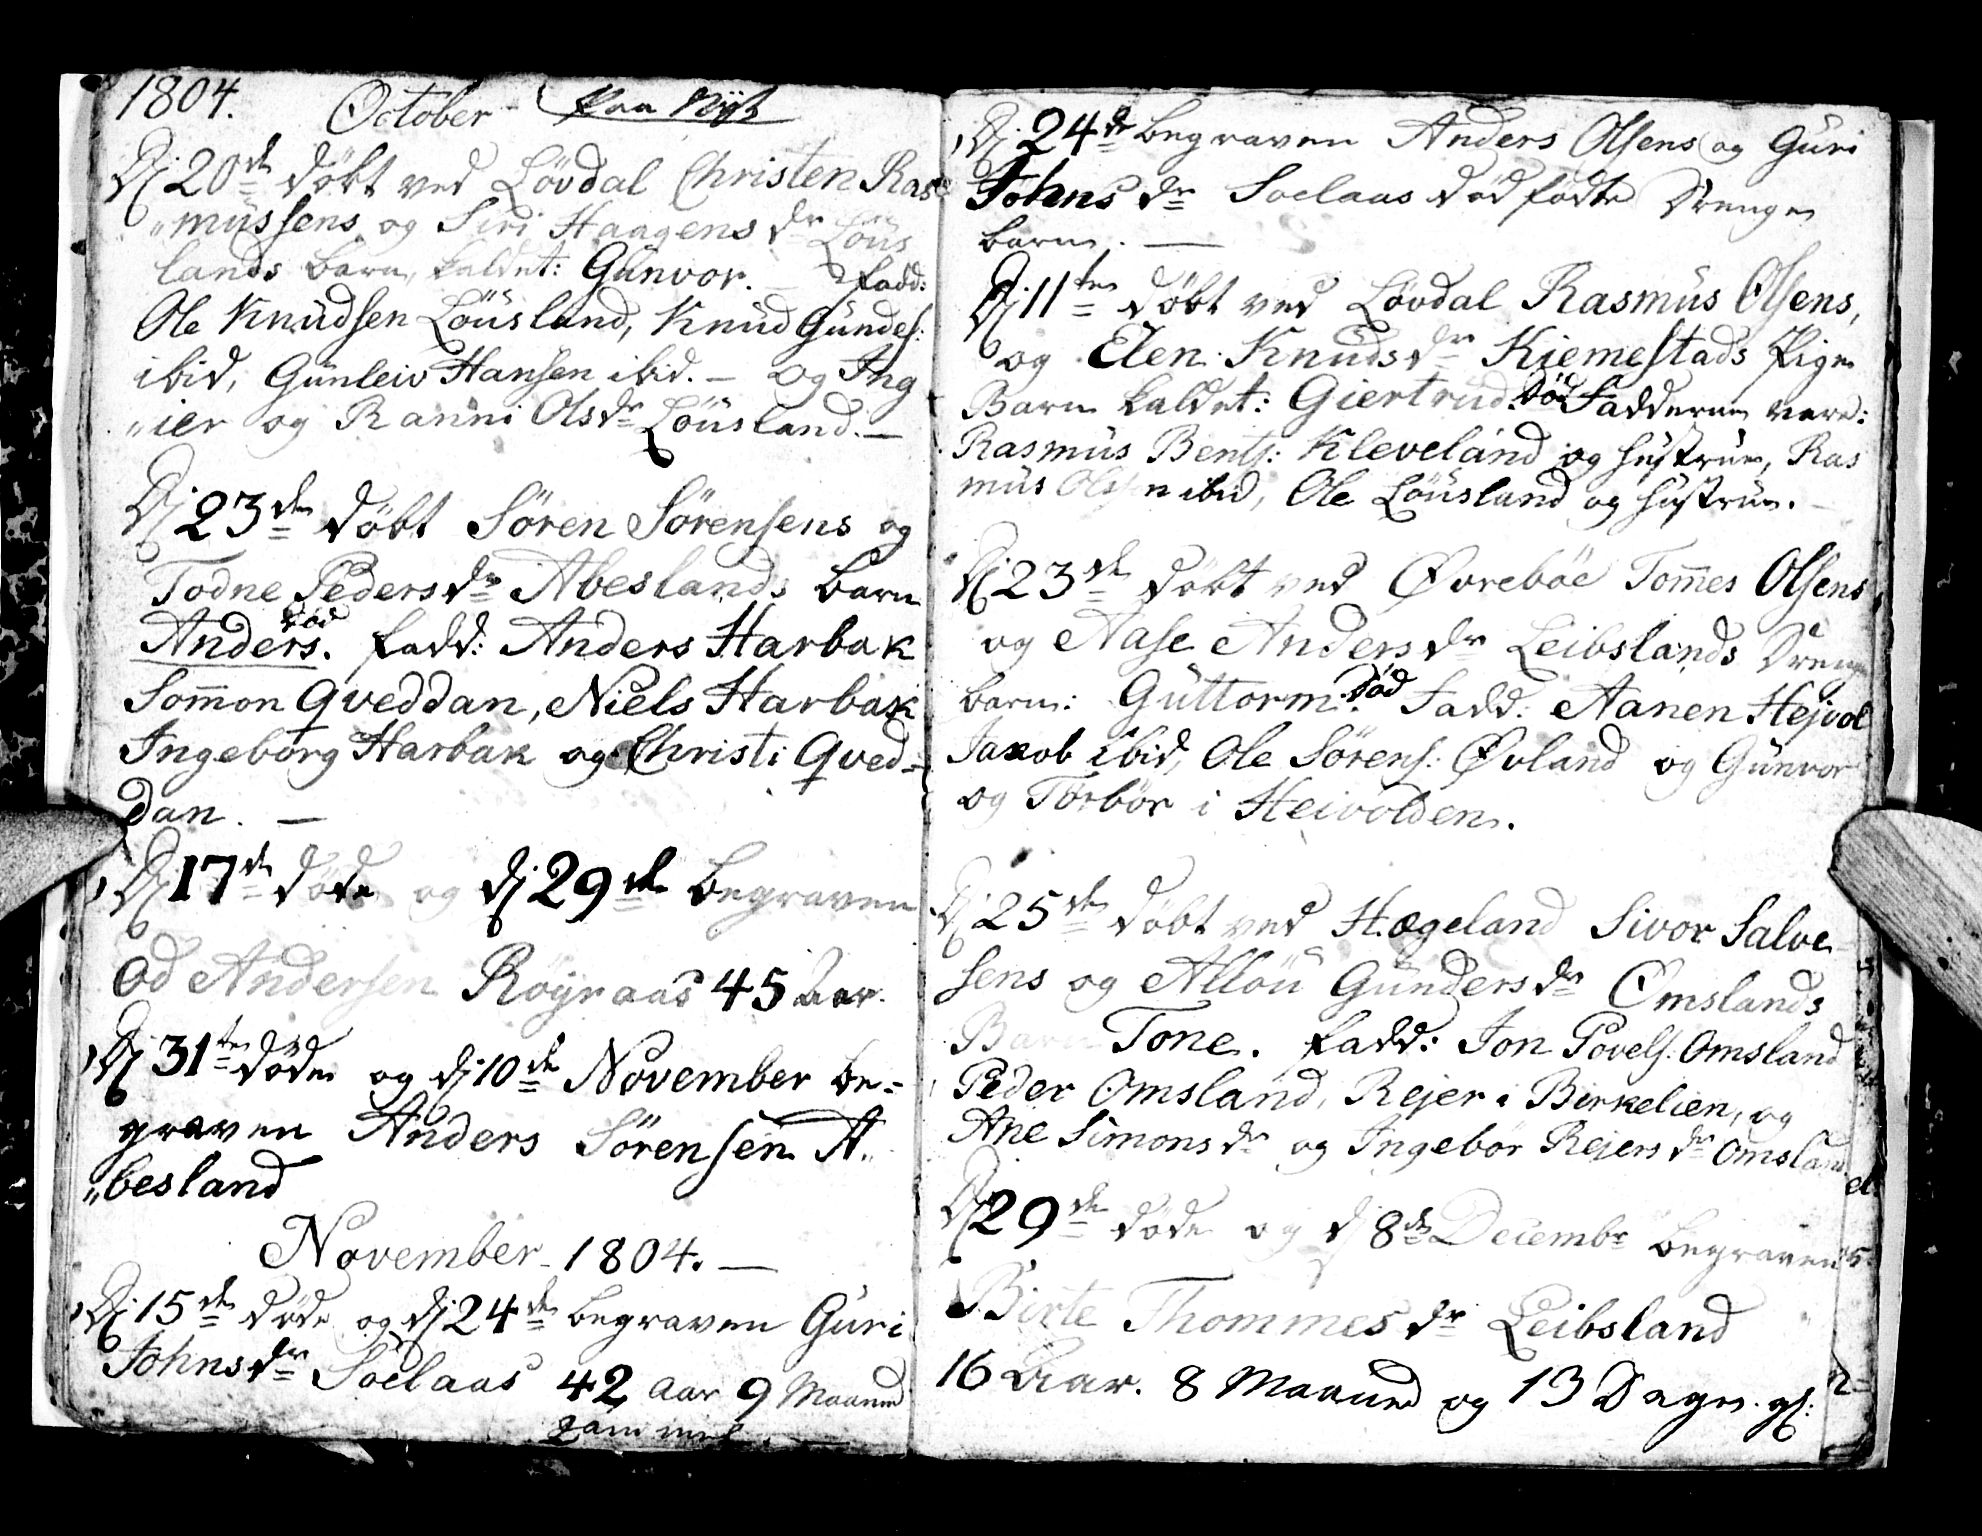 1804. October paa Nÿt
Dj 20de døbt ved Løvdal Christen Ras=
"mussens og Siri Haagens dr Löüs
lands barn, kaldet: Gunvor. — Fadd:
Ole Knudsen Löusland, Knud Gundes:
ibid, Gunleiv Hansen ibid. — og Ing
"ier og Ranni Olsdr Löusland. —
Dj 23de døbt Søren Sørensens og
Todne Pedersdr Abeslands barn
død
Anders. Fadd: Anders Harbak
Som̄on Qveddan, Niels Harbak
Ingeborg Harbak og Christi Qved=
dan. —
Dj 17de døde og dj 29de begraven
Od Andersen Röÿraas 45 Aar.
Dj 31te døde og dj 10de November be=
graven Anders Sørensen A"
"besland
November 1804. —
Dj 15de døde og dj 24de begraven Guri
Johnsdr Soelaas 42 aar 9 Maaned
gammel. —
Dj 24de begraven Anders Olsens og Guri
Johns dr Soelaas død fødte Drenge
barn. —
Dj 11te døbt ved Løvdal Rasmus Olsens,
og Elen Knudsdr Kiemestads Pige
Barn kaldet: Giertrud. død Fadderne vare:
Rasmus Bents: Kleveland og hustrue, Ras
mus Olsen ibid, Ole Löusland og hustrue. —
Dj 23de døbt ved Øvrebøe Tom̄es Olsens
og Aase Andersdr Leibslands Drenge
barn: Guttorm. død Fadd: Aanen Hejvol
Jakob ibid, Ole Sørens: Øvland og Gunvor
og Torbör i Heivolden.
Dj 25de døbt ved Hægeland Sivor Salve
sens og Allöu Gundersdr Omslands
Barn Tone. Fadd: Jon Povels: Omsland
Peder Omsland, Rejer i Birkelien, og
Ane Simonsdr og Ingebør Rejersdr Omsland
Dj 29de døde og dj 8de Decembr begraven
Birte Thommesdr Leibsland
16 Aar. 8 Maaned og 13 Dage. gl: